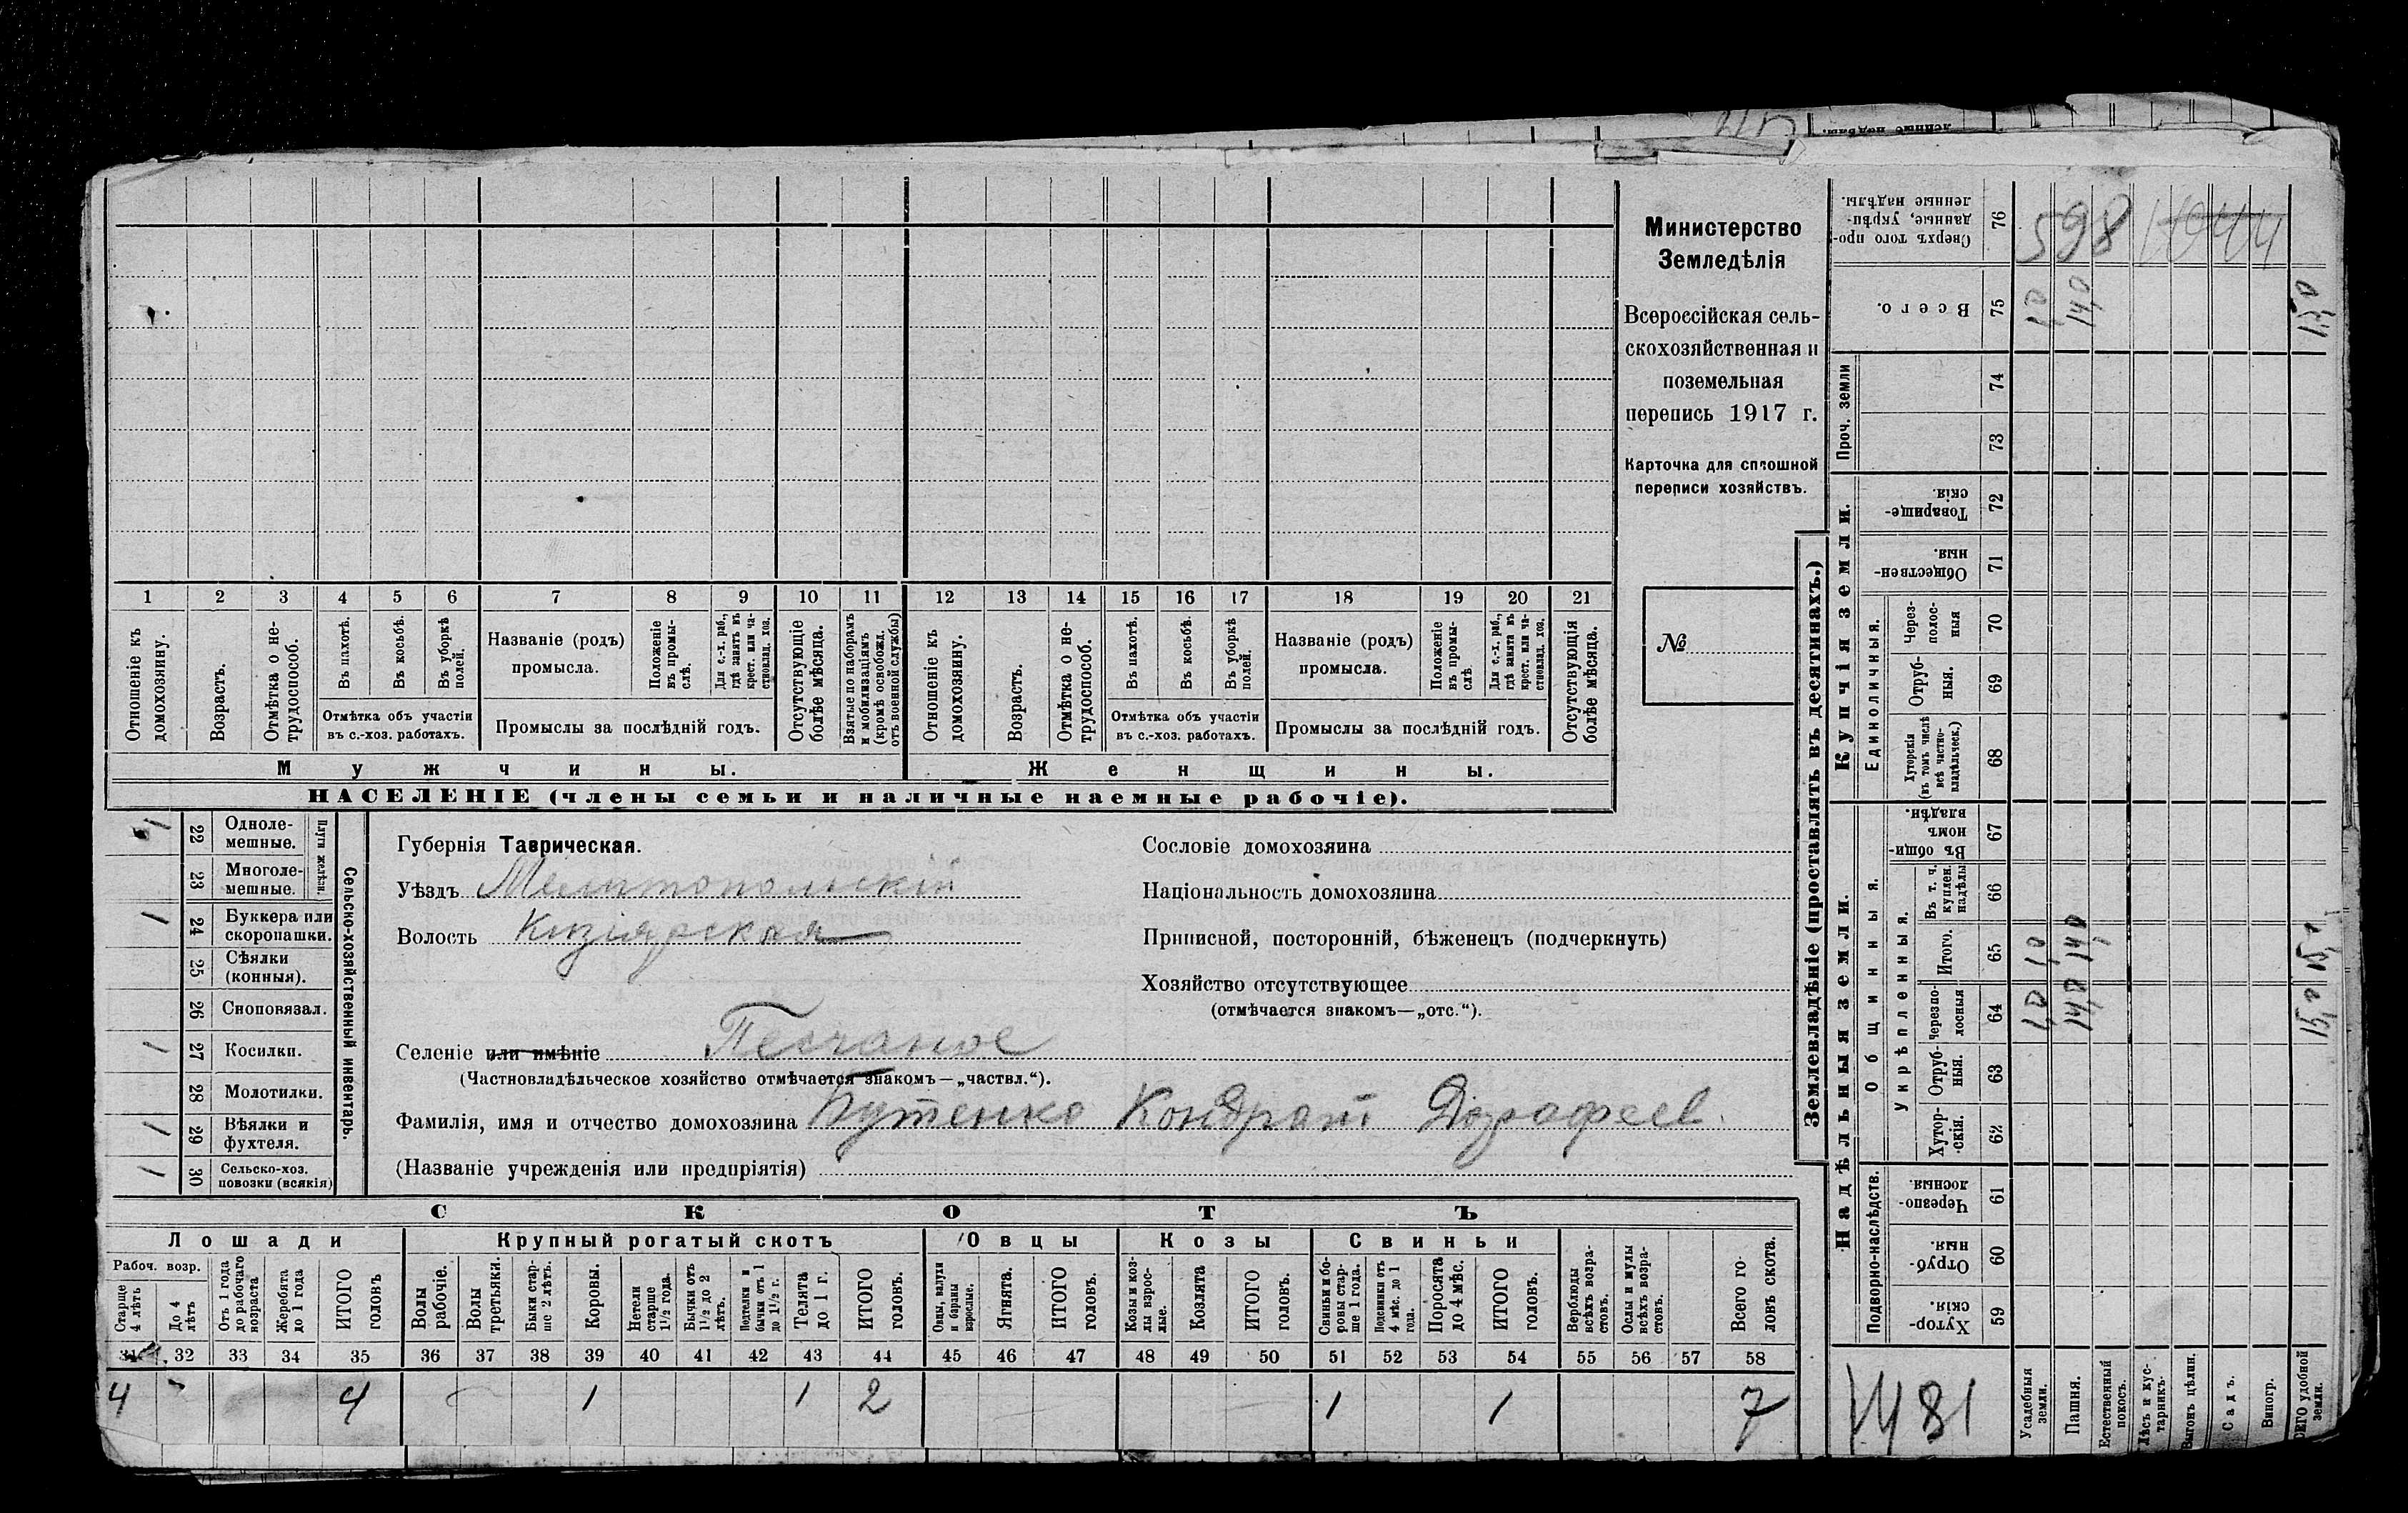 Министерство
Земледѣлія
Всероссійская сель-
скохозяйственная и
поземельная
перепись 1917 г.
Карточка для сплошной
переписи хозяйствъ.
№
1 2 3 4 5 6 7 8 9 10 11 12 13 14 15 16 17 18 19 20 21
Отношеніе къ домохозяину.
Возрастъ.
Отмѣтка о не-трудоспособ.
Въ пахотѣ.
Въ косьбѣ.
Въ уборкѣ полей.
Отмѣтка объ участіи
въ с.-хоз. работахъ.
Названіе (родъ)
промысла.
Положеніе въ промы-слѣ.
Для с.-х. раб., гдѣ занятъ въ крест. или ча-стновлад. хоз.
Промыслы за послѣдній годъ.
Отсутствующіе болѣе мѣсяца.
Взятые по наборамъ и мобилизаціямъ (кромѣ освобожд. отъ военной службы)
Отношеніе къ домохозяину.
Возрастъ.
Отмѣтка о не-трудоспособ.
Въ пахотѣ.
Въ косьбѣ.
Въ уборкѣ полей.
Отмѣтка объ участіи
въ с.-хоз. работахъ.
Названіе (родъ)
промысла.
Положеніе въ промы-слѣ
Для с.-х. раб., гдѣ занятъ въ крест. или ча-стновлад. хоз.
Промыслы за послѣдній годъ.
Отсутствующія болѣе мѣсяца.
Мужчины.
Женщины.
НАСЕЛЕНІЕ (члены семьи и наличные наемные рабочіе).
Сельско-хозяйственный инвентарь.
Плуги желѣзн.
1 22 Одноле-мешные.
23 Многоле-мешные.
1 24 Буккера или скоропашки.
25 Сѣялки (конныя).
26 Сноповязал.
1 27 Косилки.
28 Молотилки.
1 29 Вѣялки и фухтеля.
1 30 Сельско-хоз. повозки (всякія)
Губернія Таврическая.
Уѣздъ Мелитопольскій
Волость Кизіярская
Селеніе или имѣніе Песчаное
(Частновладѣльческое хозяйство отмѣчается знакомъ—„частвл.“).
Фамилія, имя и отчество домохозяина Бутенко Кондрат Дорофеев
(Названіе учрежденія или предпріятія)
Сословіе домохозяина
Національность домохозяина
Приписной, посторонній, бѣженецъ (подчеркнуть)
Хозяйство отсутствующее
(отмѣчается знакомъ—„отс.“).
СКОТЪ
Лошади
Крупный рогатый скотъ
Овцы
Козы
Свиньи
Рабоч. возр.
Старше 4 лѣтъ
До 4 лѣтъ
Отъ 1 года до рабочаго возраста
Жеребята до 1 года
ИТОГО головъ
Волы рабочіе.
Волы третьяки.
Быки стар-ше 2 лѣтъ.
Коровы.
Нетели старше 1½ года.
Бычки отъ 1½ до 2 лѣтъ.
Подтелки и бычки отъ 1 до 1½ г.
Телята до 1 г.
ИТОГО головъ.
Овцы, валухи и бараны взрослые.
Ягнята.
ИТОГО головъ.
Козы и коз-лы взрос-лые.
Козлята
ИТОГО головъ.
Свиньи и бо-ровы стар-ше 1 года.
Подсвинки отъ 4 мѣс. до 1 года.
Поросята до 4 мѣс.
ИТОГО головъ.
Верблюды всѣхъ возра-стовъ.
Ослы и мулы всѣхъ возра-стовъ.
Всего го-ловъ скота.
31 32 33 34 35 36 37 38 39 40 41 42 43 44 45 46 47 48 49 50 51 52 53 54 55 56 57 58
4 4 1 1 2 1 1 7
Землевладѣніе (проставлять въ десятинахъ.)
Сверхъ того про-данные, укрѣп-ленные надѣлы. 76
598 1044
Всего. 75 1,0 14,0 15,0
Проч. земли 74
73
Купчія земли.
Товарище-скія. 72
Обществен-ныя. 71
Единоличныя.
Через-полос-ныя 70
Отруб-ныя. 69
Хуторскія (въ томъ числѣ всѣ частно-владѣльческ.) 68
Надѣльныя земли.
Общинныя.
Въ общин-номъ владѣн. 67
Укрѣпленныя.
Въ т. ч. куплен. надѣлы 66
Итого. 65 1,0 14,0 15,0
Черезпо-лосныя 64 1,0 14,0 15,0
Отруб-ныя. 63
Хутор-скія. 62
Подворно-наслѣдств.
Черезпо-лосныя. 61
Отруб-ныя. 60
Хутор-скія. 59
1481
Усадебныя земли.
Пашня.
Естественный покосъ.
Лѣсъ и кус-тарникъ.
Выгонъ цѣлин.
Садъ.
Виногр.
ВСЕГО удобной земли.